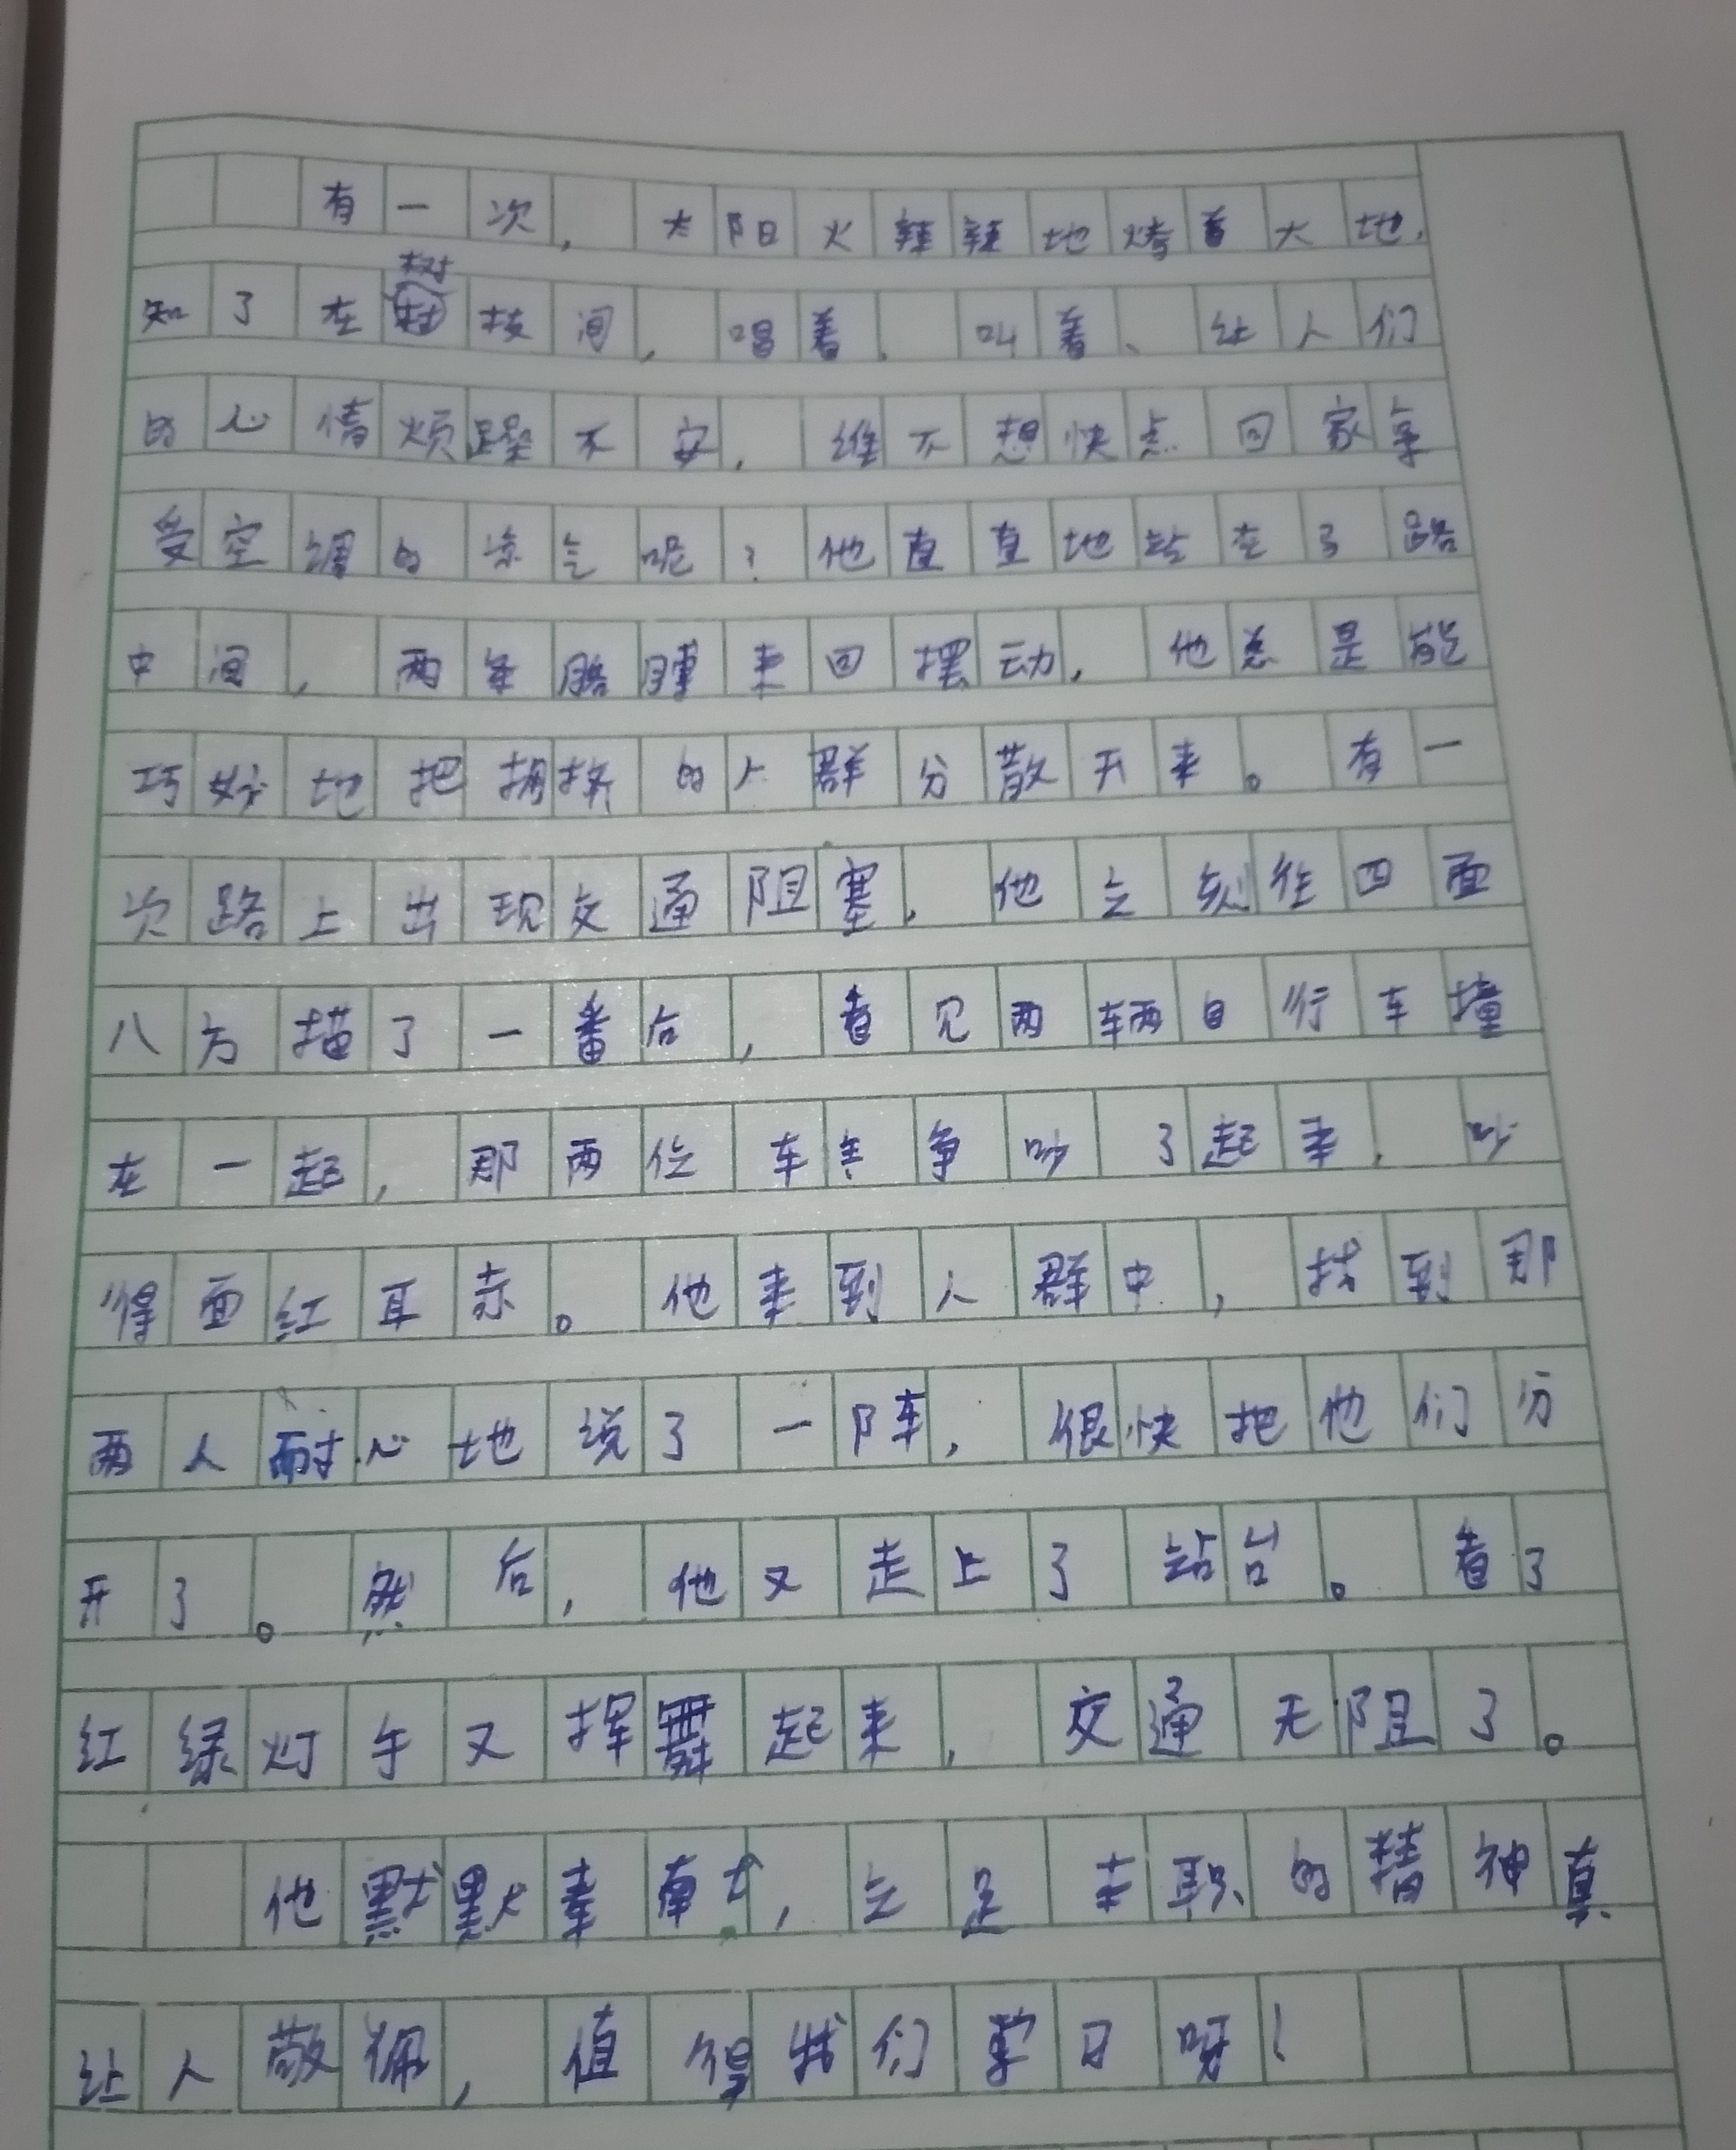 有一次，太阳火辣辣地烤着大地，
知了在树枝间，唱着，叫着、让人们
的心情烦躁不安，谁不想快点回家享
受空调的凉气呢？他直直地站在了路
中间，两条胳膊来回摆动，他总是能
巧妙地把拥挤的人群分散开来。有一
次路上出现交通阻塞，他立刻往四面
八方描了一番后，看见两辆自行车撞
在一起，那两位车主争吵了起来，吵
得面红耳赤。他来到人群中，找到那
两人耐心地说了一阵，很快把他们分
开了。然后，他又走上了站台。看了
红绿灯午又挥舞起来，交通无阻了。
他默默奉献，立足本职的精神真
让人敬佩，值得我们学习呀！